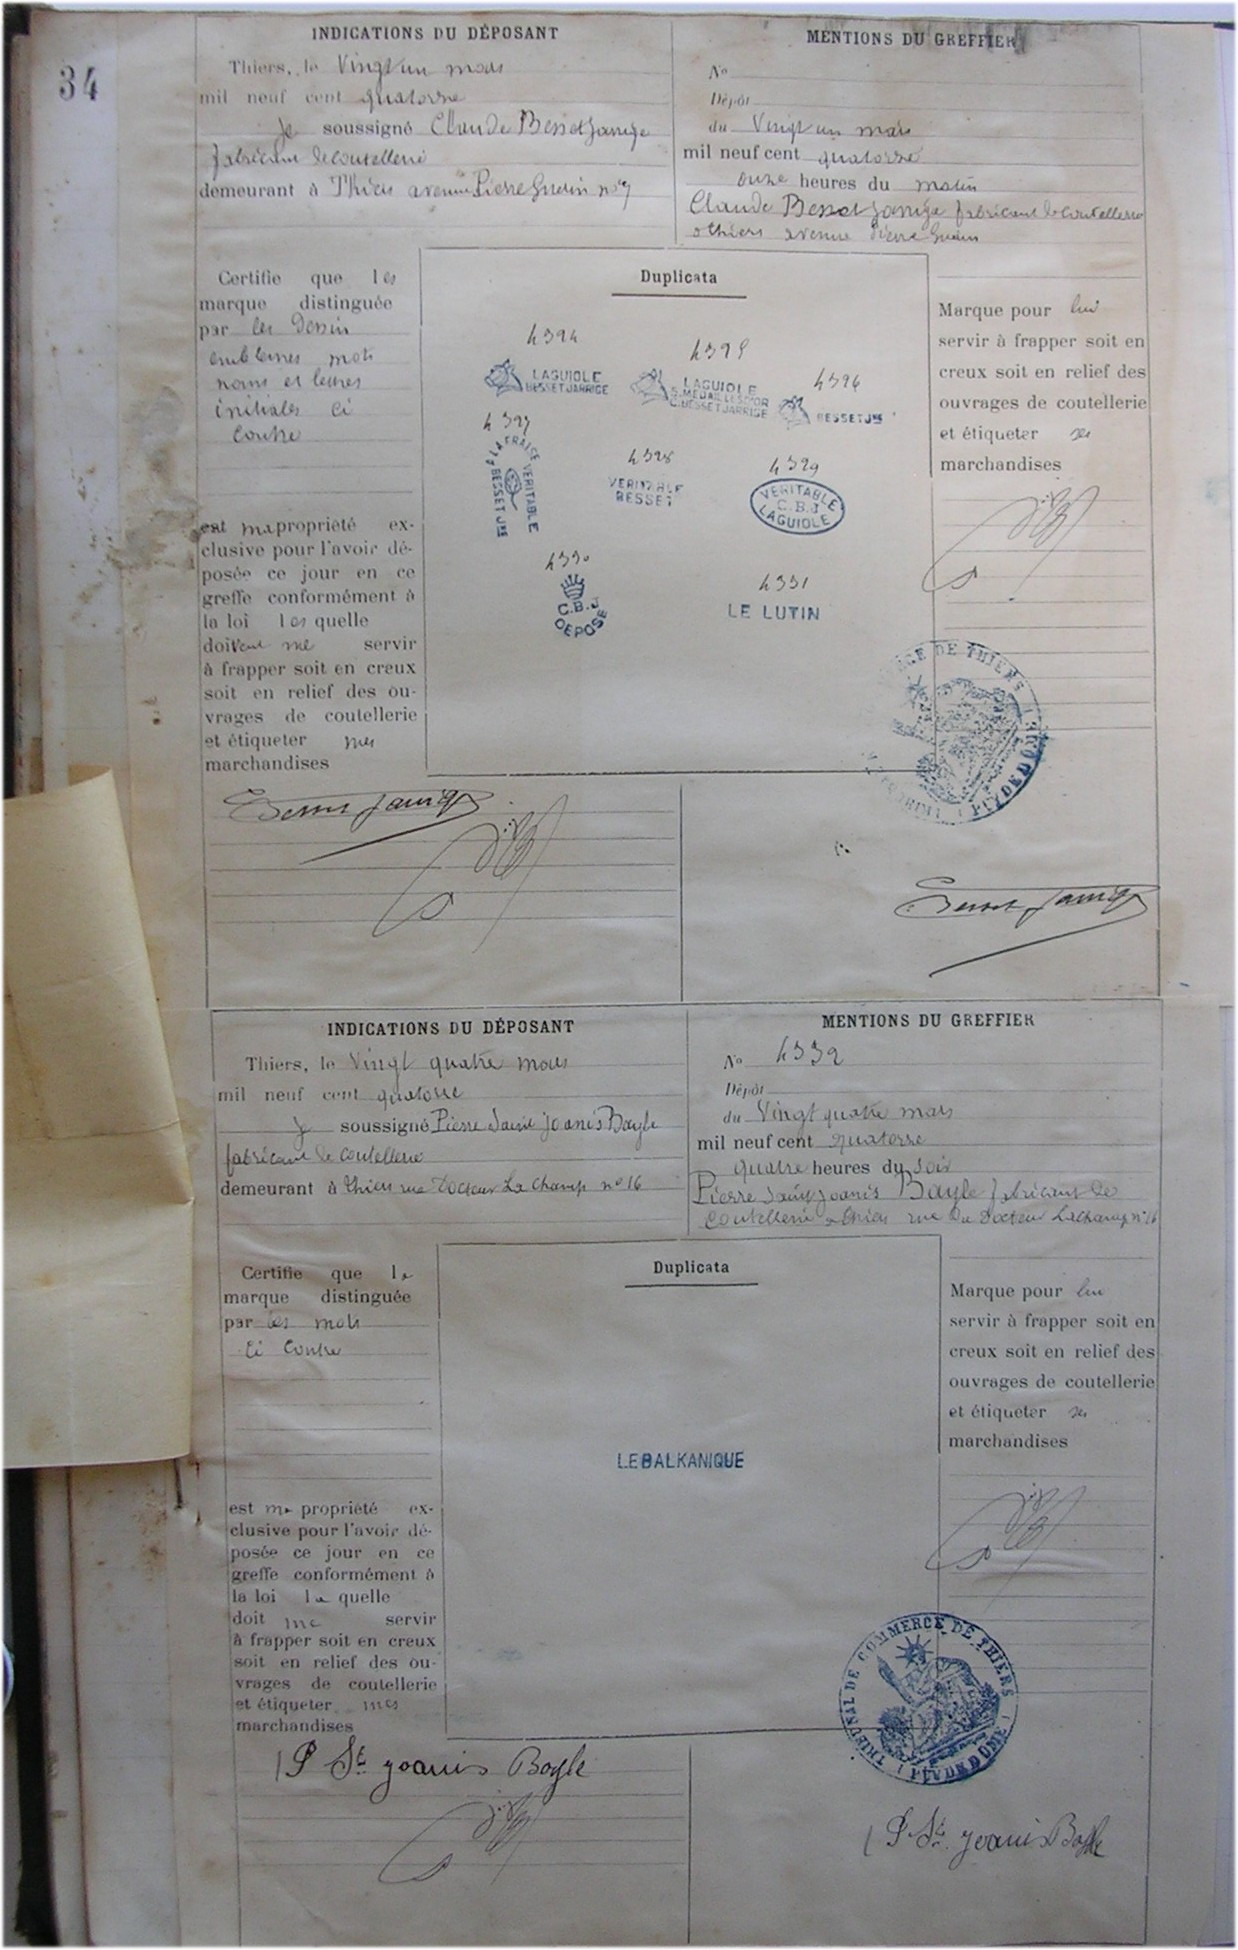 34
INDICATIONS DU DÉPOSANT
Thiers, le Vingt un mars
mil neuf cent quatorze
Je soussigné Claude Besset Jarrige
fabricant de coutellerie
demeurant à Thiers avenue Pierre Guerin no 7
MENTIONS DU GREFFIER
No
Dépôt
du Vingt un mars
mil neuf cent quatorze
onze heures du matin
Claude Besset Jarrige fabricant de coutellerie
a Thiers avenue Pierre Guerin
Certifie que les
marque distinguée
par les Dessin
emblemes mots
noms et lettres
initiales ci
contre
est ma propriété ex-
clusive pour l'avoir dé-
posée ce jour en ce
greffe conformément à
la loi les quelle
doivent me servir
à frapper soit en creux
soit en relief des ou-
vrages de coutellerie
et étiqueter mes
marchandises
Duplicata
4324
LAGUIOLE
BESSET JARRIGE
4325
LAGUIOLE
S.MEDAILLES D'OR
C.BESSET JARRIGE
4326
BESSET JNE
4327
A LA FRAISE
VERITABLE
BESSET JNE
4328
VERITABLE
BESSET
4329
VERITABLE
C.B.J
LAGUIOLE
4330
C.B.J
DEPOSE
4331
LE LUTIN
Marque pour lui
servir à frapper soit en
creux soit en relief des
ouvrages de coutellerie
et étiqueter ses
marchandises
CE DE THIERS
PUY DE DOME
Besset Jarrige
Besset Jarrige
INDICATIONS DU DÉPOSANT
Thiers, le Vingt quatre mars
mil neuf cent quatorze
Je soussigné Pierre Saint Joanis Bayle
fabricant de coutellerie
demeurant à Thiers rue Docteur Lachamp no 16
MENTIONS DU GREFFIER
No 4332
Dépôt
du Vingt quatre mars
mil neuf cent quatorze
quatre heures du soir
Pierre Saint Joanis Bayle fabricant de
coutellerie a Thiers rue du Docteur Lachamp no 16
Certifie que la
marque distinguée
par les mots
ci contre
est ma propriété ex-
clusive pour l'avoir dé-
posée ce jour en ce
greffe conformément à
la loi la quelle
doit me servir
à frapper soit en creux
soit en relief des ou-
vrages de coutellerie
et étiqueter mes
marchandises
Duplicata
LE BALKANIQUE
Marque pour lui
servir à frapper soit en
creux soit en relief des
ouvrages de coutellerie
et étiqueter ses
marchandises
TRIBUNAL DE COMMERCE DE THIERS
PUY DE DOME
P St Joanis Bayle
P St Joanis Bayle